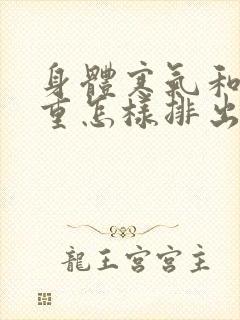 身體寒氣和
重怎樣排出
龍王宮宮主